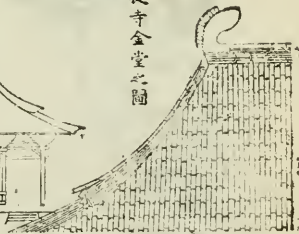 寺金堂之圖